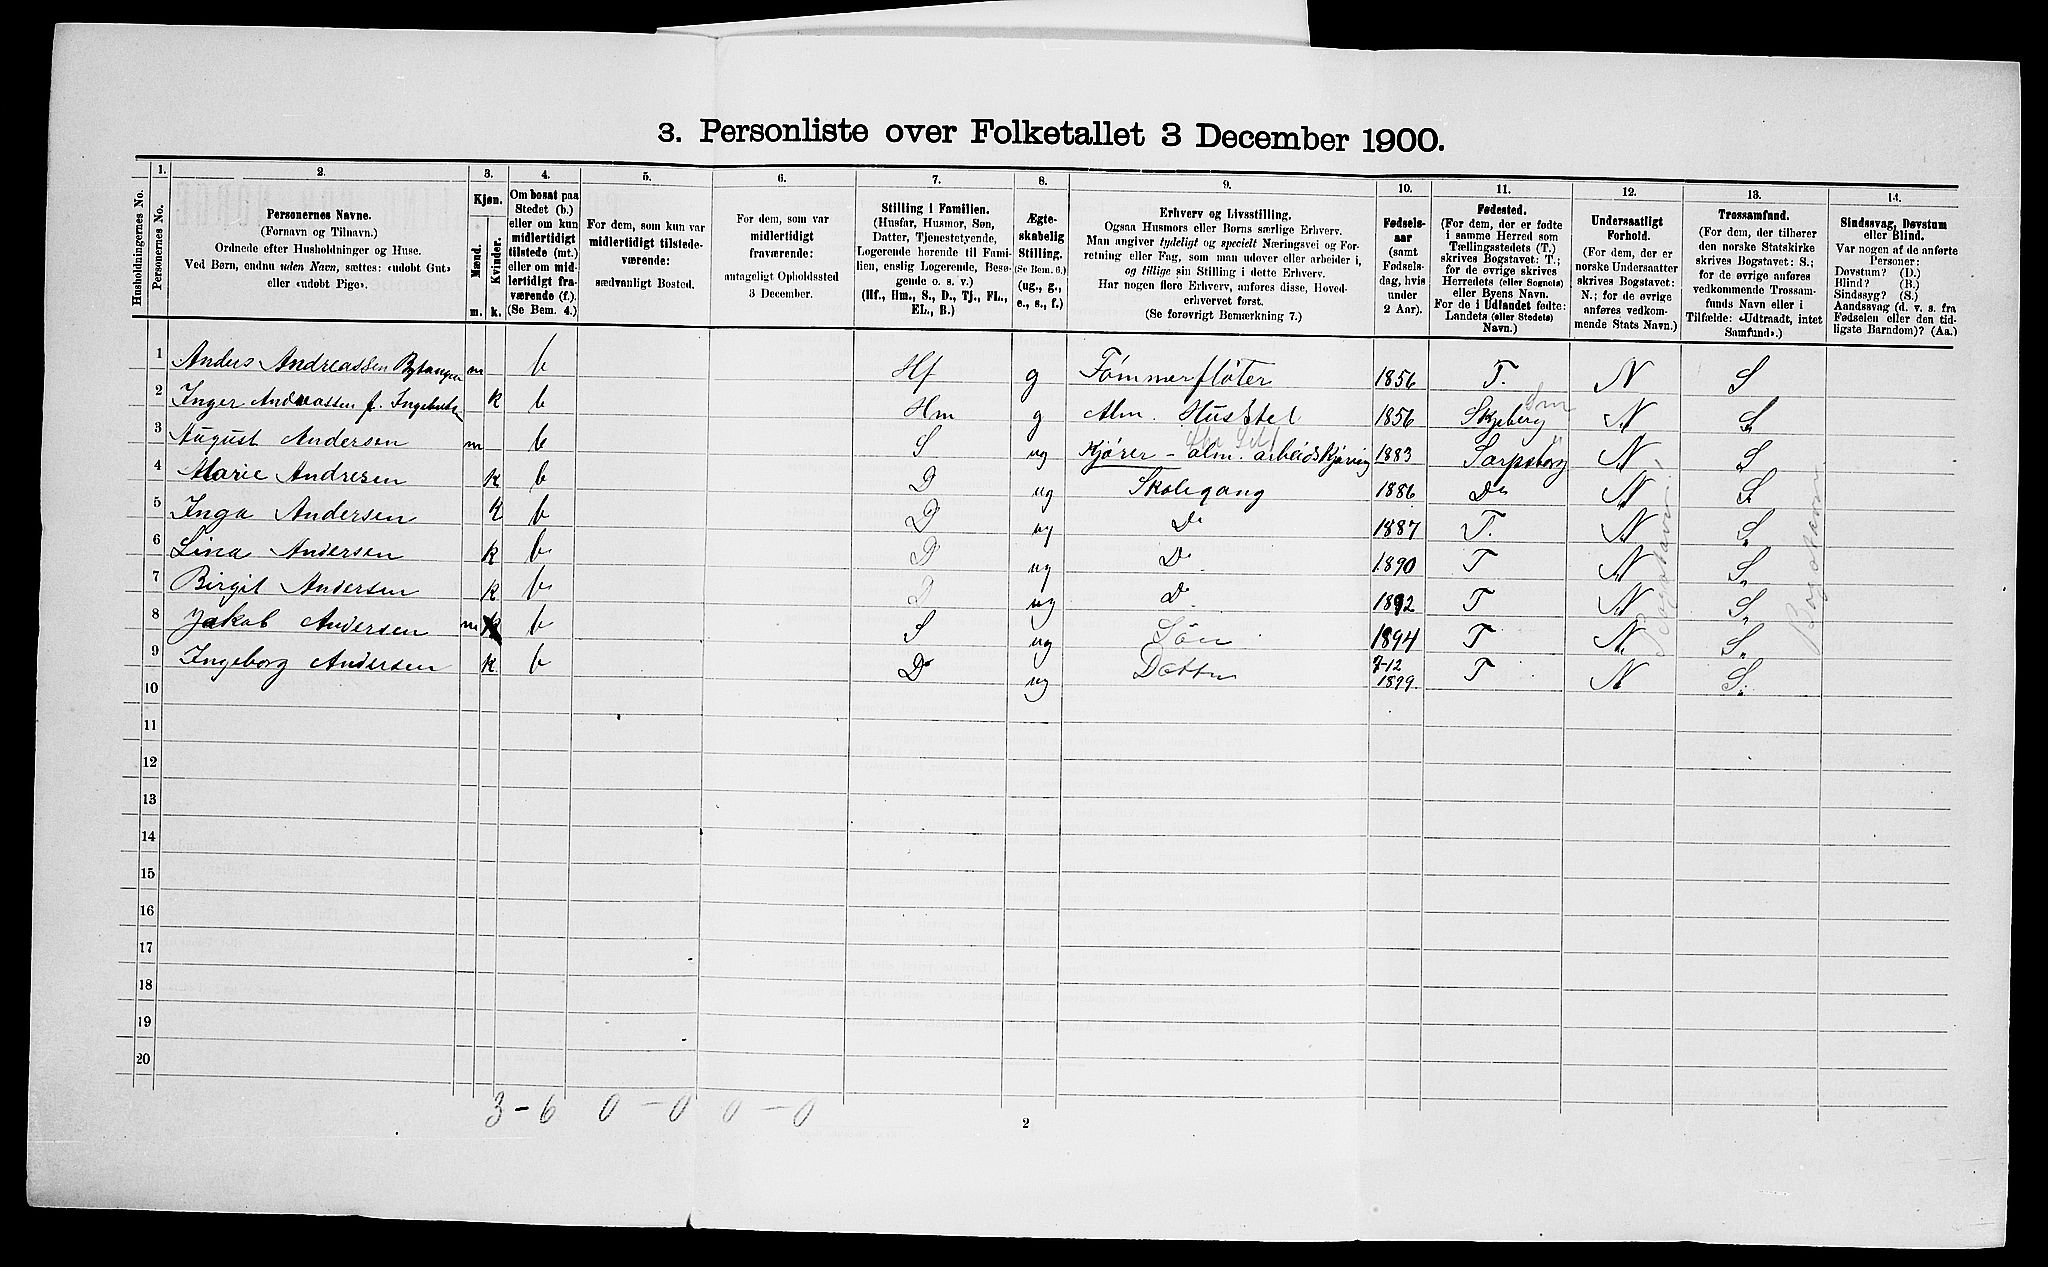 3. Personliste over Folketallet 3 December 1900.
Husholdningernes No.
1.
Personernes No.
2.
Personernes Navne.
(Fornavn og Tilnavn.)
Ordnede efter Husholdninger og Huse.
Ved Børn, endnu uden Navn, sættes: «udobt Gut»
eller «udobt Pige».
3.
Kjøn.
Mænd.
Kvinder.
m. k.
4.
Om bosat paa
Stedet (b.)
eller om kun
midlertidigt
tilstede (mt.)
eller om mid-
lertidigt fra-
værende (f.).
(Se Bem. 4.)
5.
For dem, som kun var
midlertidigt tilstede-
værende:
sædvanligt Bosted.
6.
For dem, som var
midlertidigt
fraværende:
antageligt Opholdssted
3 December.
7.
Stilling i Familien.
(Husfar, Husmor, Søn,
Datter, Tjenestetyende,
Logerende hørende til Fami-
lien, enslig Logerende, Besø-
gende o. s. v.)
(Hf., Hm., S., D., Tj., FL.,
EL., B.)
8.
Ægte-
skabelig
Stilling.
(Se Bem. 6.)
(ug., g.,
e., s., f.)
9.
Erhverv og Livsstilling.
Ogsaa Husmors eller Børns særlige Erhverv.
Man angiver tydeligt og specielt Næringsvei og For-
retning eller Fag, som man udøver eller arbeider i,
og tillige sin Stilling i dette Erhverv.
Har nogen flere Erhverv, anføres disse, Hoved-
erhvervet først.
(Se forøvrigt Bemærkning 7.)
10.
Fødsels-
aar
(samt
Fødsels-
dag, hvis
under
2 Aar).
11.
Fødested.
(For dem, der er fødte
i samme Herred som
Tællingsstedets (T.)
skrives Bogstavet: T.;
for de øvrige skrives
Herredets (eller Sognets)
eller Byens Navn.
For de i Udlandet fødte:
Landets (eller Stedets)
Navn.)
12.
Undersaatligt
Forhold.
(For dem, der er
norske Undersaatter
skrives Bogstavet:
N.; for de øvrige
anføres vedkom-
mende Stats Navn.)
13.
Trossamfund.
(For dem, der tilhører
den norske Statskirke
skrives Bogstavet: S.;
for de øvrige anføres
vedkommende Trossam-
funds Navn eller i
Tilfælde: «Udtraadt, intet
Samfund».)
14.
Sindssvag, Døvstum
eller Blind.
Var nogen af de anførte
Personer:
Døvstum? (D.)
Blind? (B.)
Sindssyg? (S.)
Aandssvag (d. v. s. fra
Fødselen eller den tid-
ligste Barndom)? (Aa.)
1 Anders Andreassen m b Hf g Tømmerfløter 1856 T. N S
2 Inger Andreassen f. k b Hm g Alm. Husstel 1856 Skjeberg N S
3 August Andersen m b S ug Kjører - alm. arbeidskjøring 1883 Sarpsborg N S
4 Marie Andresen k b D ug Skolegang 1886 Do N S
5 Inga Andersen k b D ug Do 1887 T. N S
6 Lina Andersen k b D ug D. 1890 T N S
7 Birgit Andersen k b D ug D. 1892 T N S
8 Jakob Andersen m k b S ug Søn 1894 T N S
9 Ingeborg Andersen k b D ug Datter 7-12 1899. T N S
10
11
12
13
14
15
16
17
18
19
20
3 - 6 0 - 0 0 - 0
2
Bogstaven
Bogstaven